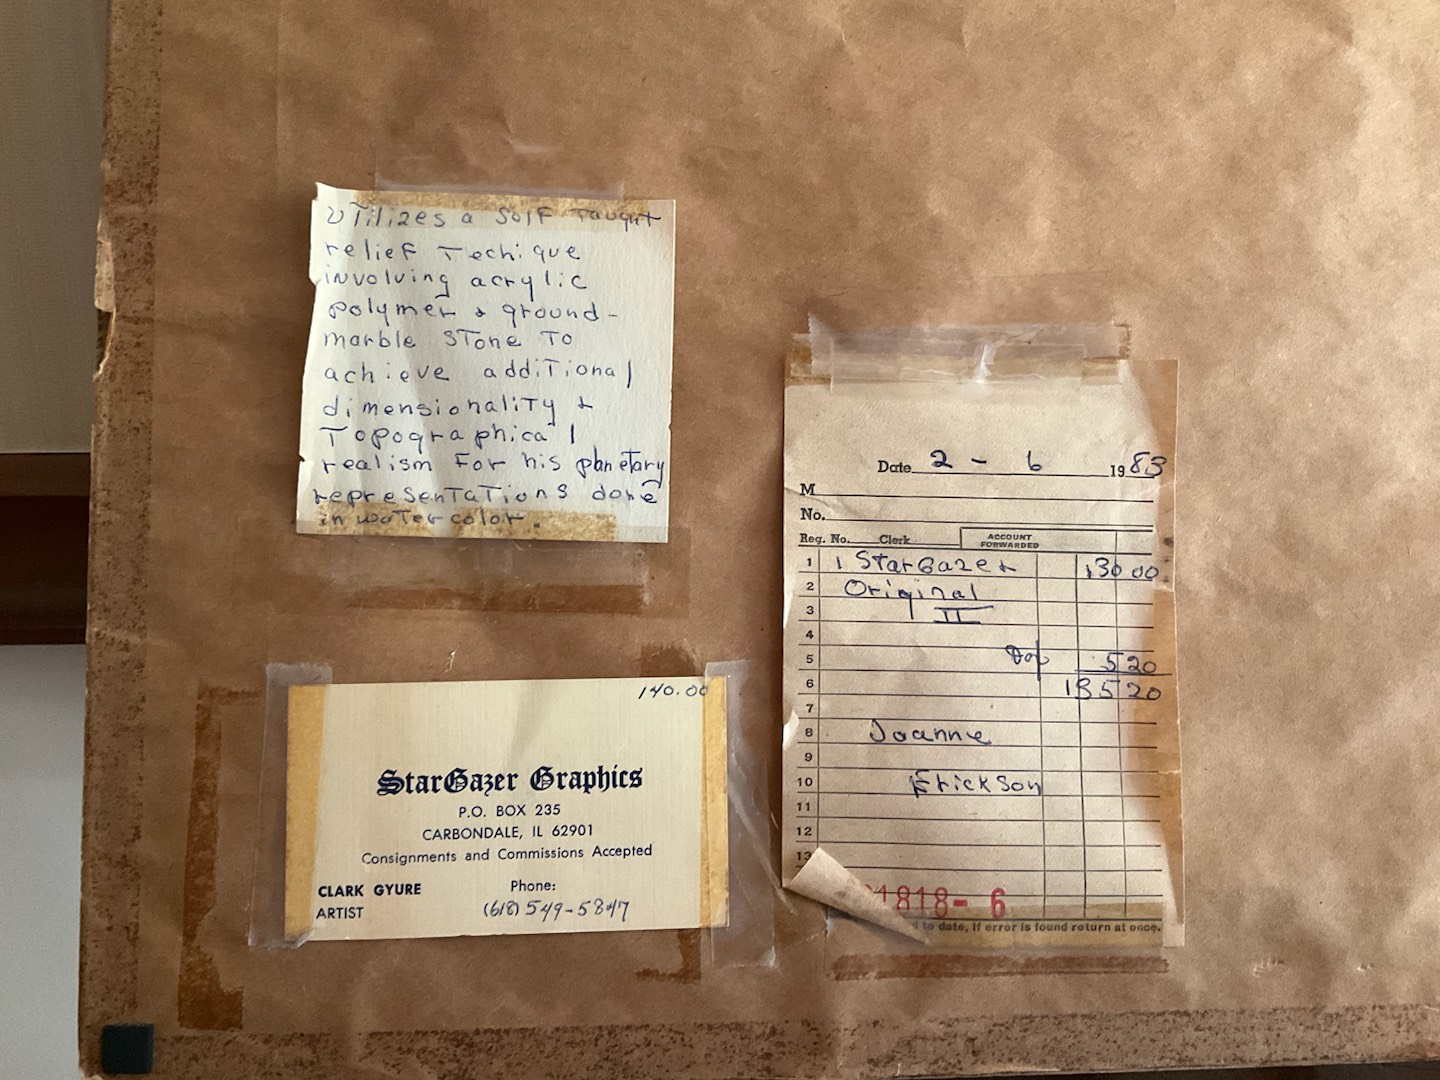 UTilizes a SelF Taught
relieF Techique
involving acrylic
polymer & ground-
marble STone To
achieve addiTional
dimensionaliTy &
Topographical
realism For his planetary
represenTaTions done
in waTercolor.
140.00
StarGazer Graphics
P.O. BOX 235
CARBONDALE, IL 62901
Consignments and Commissions Accepted
CLARK GYURE
Phone:
ARTIST
(618) 549-5847
Date 2 - 6 1983
M
No.
Reg. No. Clerk ACCOUNT FORWARDED
1 1 StarGazer 130 00
2 Original
3 II
4
5 5 20
6 135 20
7
8 Joanne
9
10 Erickson
11
12
13
1818- 6
to date, If error is found return at once.